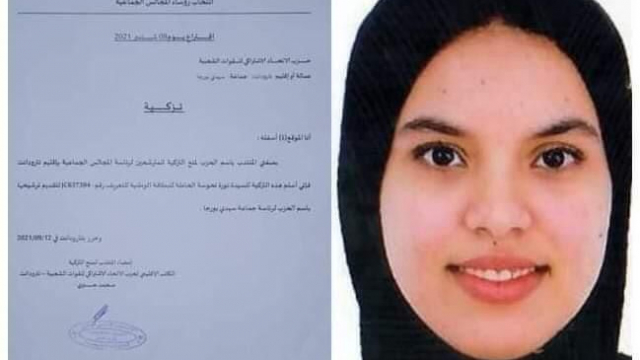 انتخاب رؤساء المجالس الجماعية
اقتراع يوم 08 شتنبر 2021
حزب الاتحاد الاشتراكي للقوات الشعبية
عمالة أو إقليم تارودانت جماعة سيدي بورجا
تزكية
أنا الموقع(ة) أسفله :
بصفتي المنتدب باسم الحزب لمنح التزكية للمترشحين لرئاسة المجالس الجماعية بإقليم تارودانت
فإني أسلم هذه التزكية للسيدة نورة لحوسة الحاملة للبطاقة الوطنية للتعريف رقم: JC637394 لتقديم ترشيحها
باسم الحزب لرئاسة جماعة سيدي بورجا .
وحرر بتارودانت في 2021/09/12
إمضاء المنتدب لمنح التزكية
الكاتب الإقليمي لحزب الاتحاد الاشتراكي للقوات الشعبية - تارودانت
محمد جبري